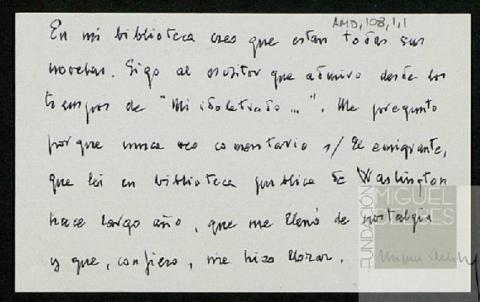 AMD,108,1,1
En mi biblioteca creo que estan todas sus
novelas. Sigo al escritor que admiro desde los
tiempos de "Mi idolatrado...". Me pregunto
porque nunca veo comentario s/ El emigrante,
que leí en biblioteca publica de Washington
hace largo año, que me llenó de nostalgia
y que, confieso, me hizo llorar.
FUNDACIÓN
MIGUEL
DELIBES